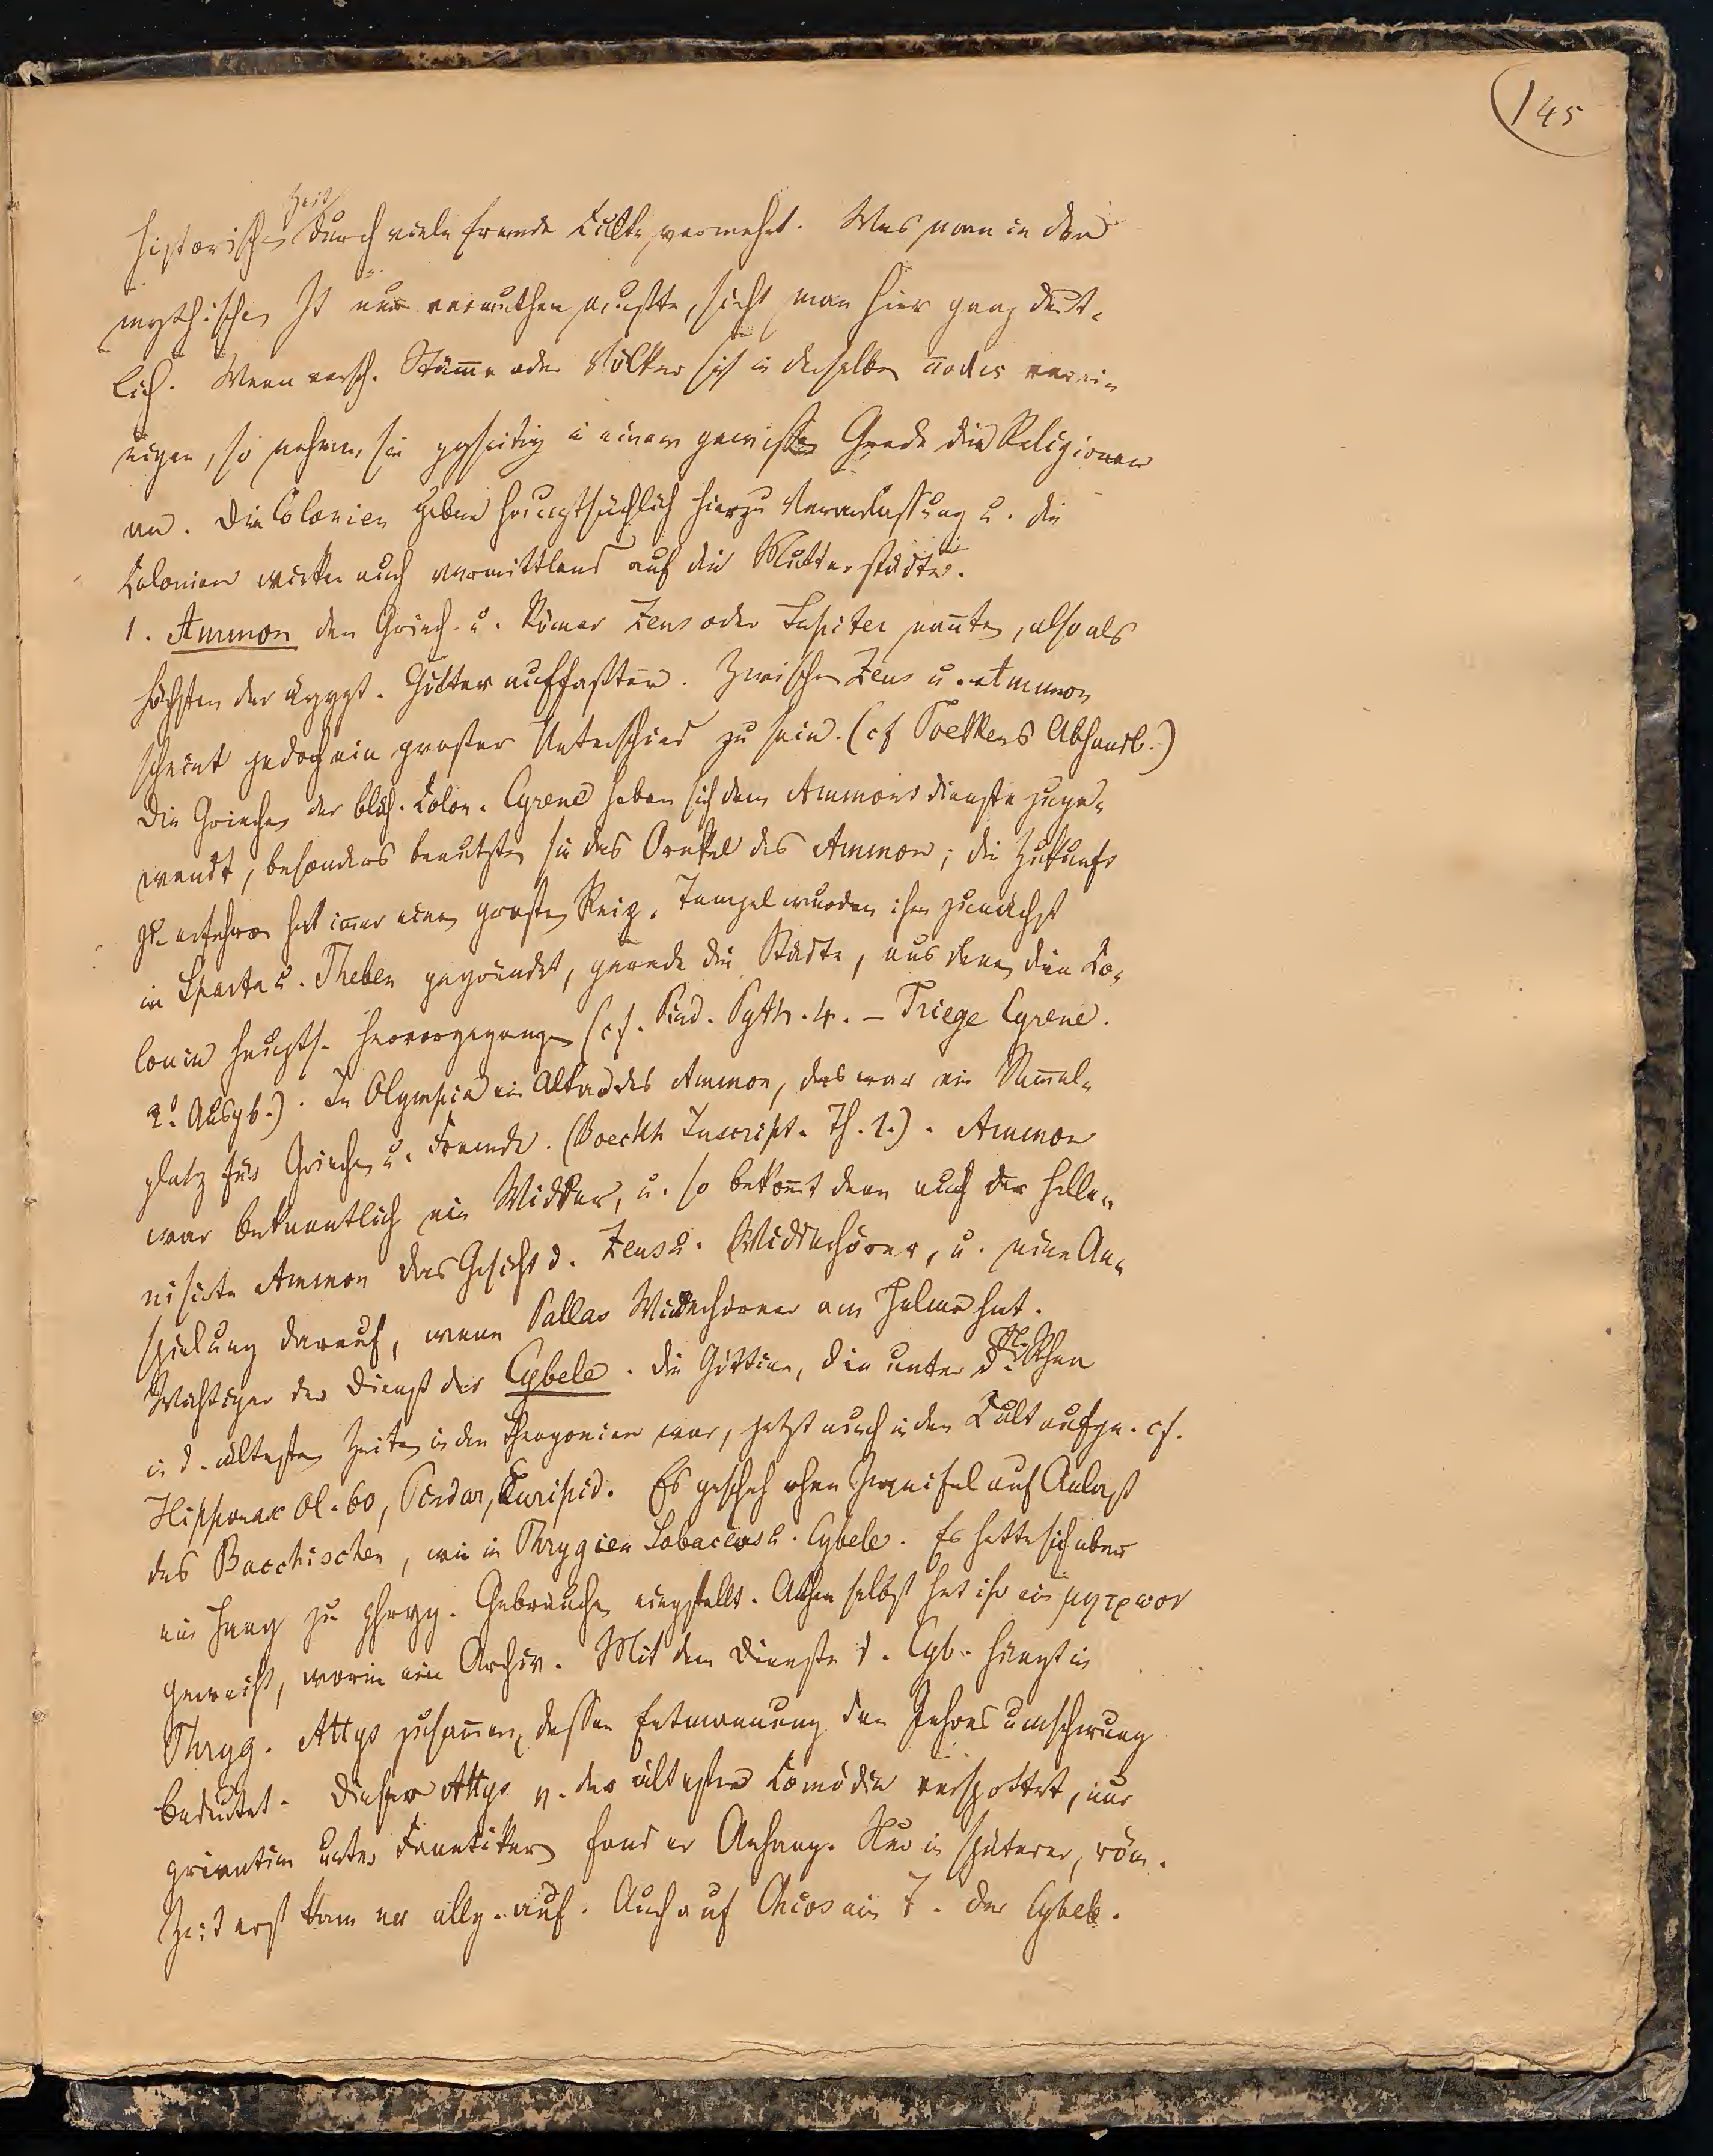 145
Zeit
historischen durch viele fremde Culte vermehrt. Was man in der
mythischen Zt nur vermuthen mußte, sieht man hier ganz deut-
lich. Wenn versch. Stämme oder Völker sich in derselben πόλις verei-
nigen, so nehmen sie ggseitig in einem gewissen Grade die Religionen
an. Die Colonien geben hauptsächlich hierzu Veranlassung u. die
Colonien wirken auch vermittelnd auf die Mutterstädte.
1. Ammon den Griech. u. Römer Zeus oder Jupiter nannten, also als
höchsten der ägypt. Götter auffaßten. Zwischen Zeus u. Ammon
scheint jedoch ein großer Unterschied zu sein. (cf Toelkens Abhandl.)
Die Griechen der blüh. Colon. Cyrene haben sich dem Ammonsdienste zuge-
wandt, besonders benutzten sie das Orakel des Ammon; die Zukunft
zu erfahren hat immer einen großen Reiz. Tempel wurden ihm zunächst
in Sparta u. Theben gegründet, gerade die Städte, aus denen die Co-
lonie haupts. hervorgegangen (cf. Pind. Pyth. 4. – Thrige Cyrene.
2t Ausgb.). In Olympia ein Altar des Ammon, das war ein Sammel-
platz für Griechen u. Fremde. (Boeckh Inscript. Th. 1.). Ammon
war bekanntlich ein Widder, u. so bekommt denn auch der helle-
nisirte Ammon das Gesicht d. Zeus u. Widderhörner, u. eine An-
spielung darauf, wenn Pallas Widderhörner am Helme hat.
Wichtiger der Dienst der Cybele. Die Göttin, die unter d. N. Rhea
in d. ältesten Zeiten in den Theogonien war, jetzt auch in den Cult aufge. cf.
Hipponax Ol. 60, Pindar, Euripid. Es geschah ohne Zweifel auf Anlaß
des Bacchischen, wie in Phrygien Sabacius u. Cybele. Es hatte sich aber
ein Hang zu phryg. Gebräuchen eingestellt. Athen selbst hat ihr ein μητρωον
geweiht, worin ein Archiv. Mit dem Dienste d. Cyb. hängt in
Phryg. Attys zusammen, dessen Entmannung den Jahresumschwung
bedeutet. Dieser Attys v. der ältesten Comödie verspottet, nur
privatim unter Fanatikern fand er Anhang. Nur in späterer, röm.
Zeit erst kam er allg. auf. Auch auf Chios ein T. der Cybele.